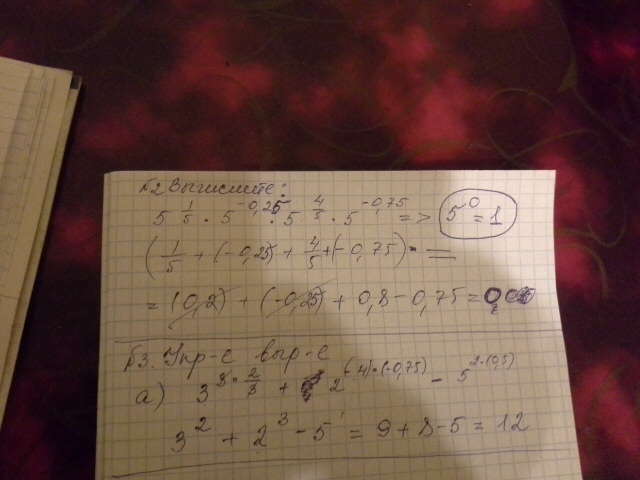 №2 Вычислите:
5^(1/5) · 5^(-0,25) · 5^(4/5) · 5^(-0,75) => 5^0 = 1
(1/5 + (-0,25) + 4/5 + (-0,75) =
= (0,2) + (-0,25) + 0,8 - 0,75 = 0
№3. Упр-е выр-е
а) 3^(3·2/3) + 2^((-4)·(-0,75)) - 5^(2·(0,5))
3^2 + 2^3 - 5^1 = 9 + 8 - 5 = 12